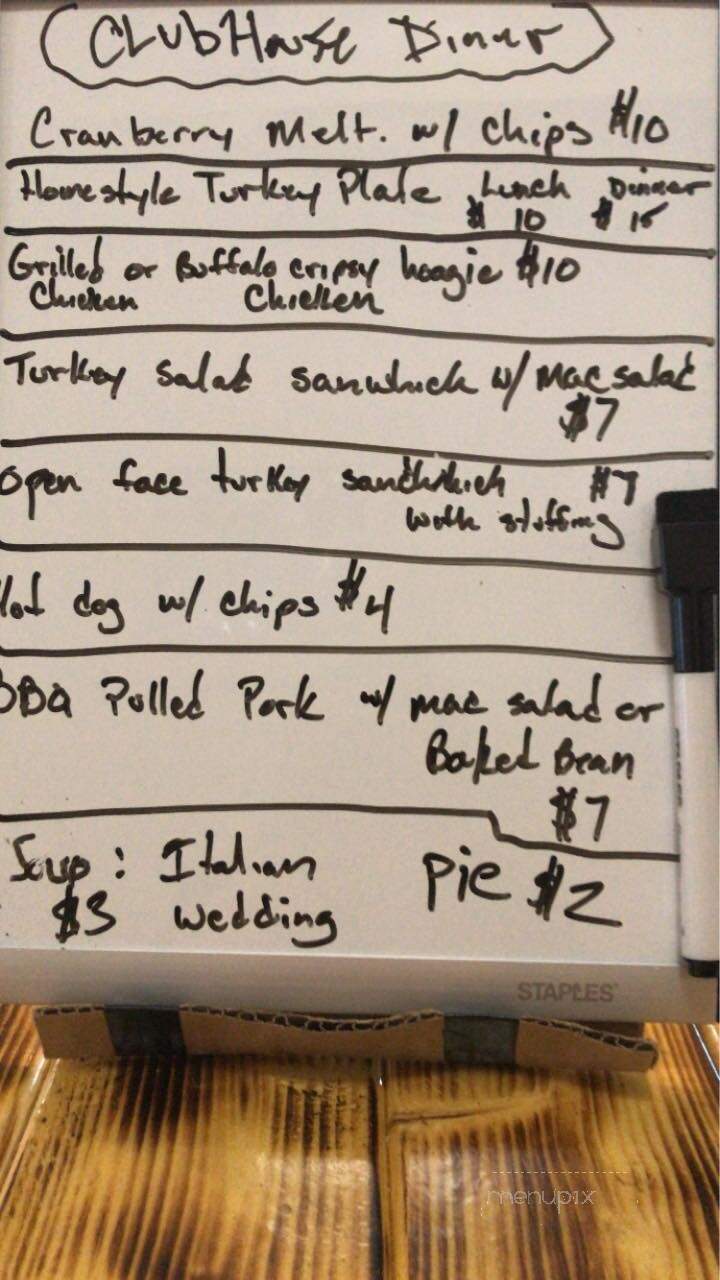 ClubHouse Diner
Cranberry Melt. w/ chips $10
Homestyle Turkey Plate Lunch Dinner
$ 10 $ 15
Grilled or Buffalo cripsy hoagie $10
Chicken Chicken
Turkey Salad sanwhick w/ Mac salad
$7
Open face turkey sandwhich $7
with stuffing
Hot dog w/ chips $4
BBQ Pulled Pork w/ mac salad or
Baked Bean
$7
Soup: Italian Pie $2
$3 wedding
STAPLES
menupix